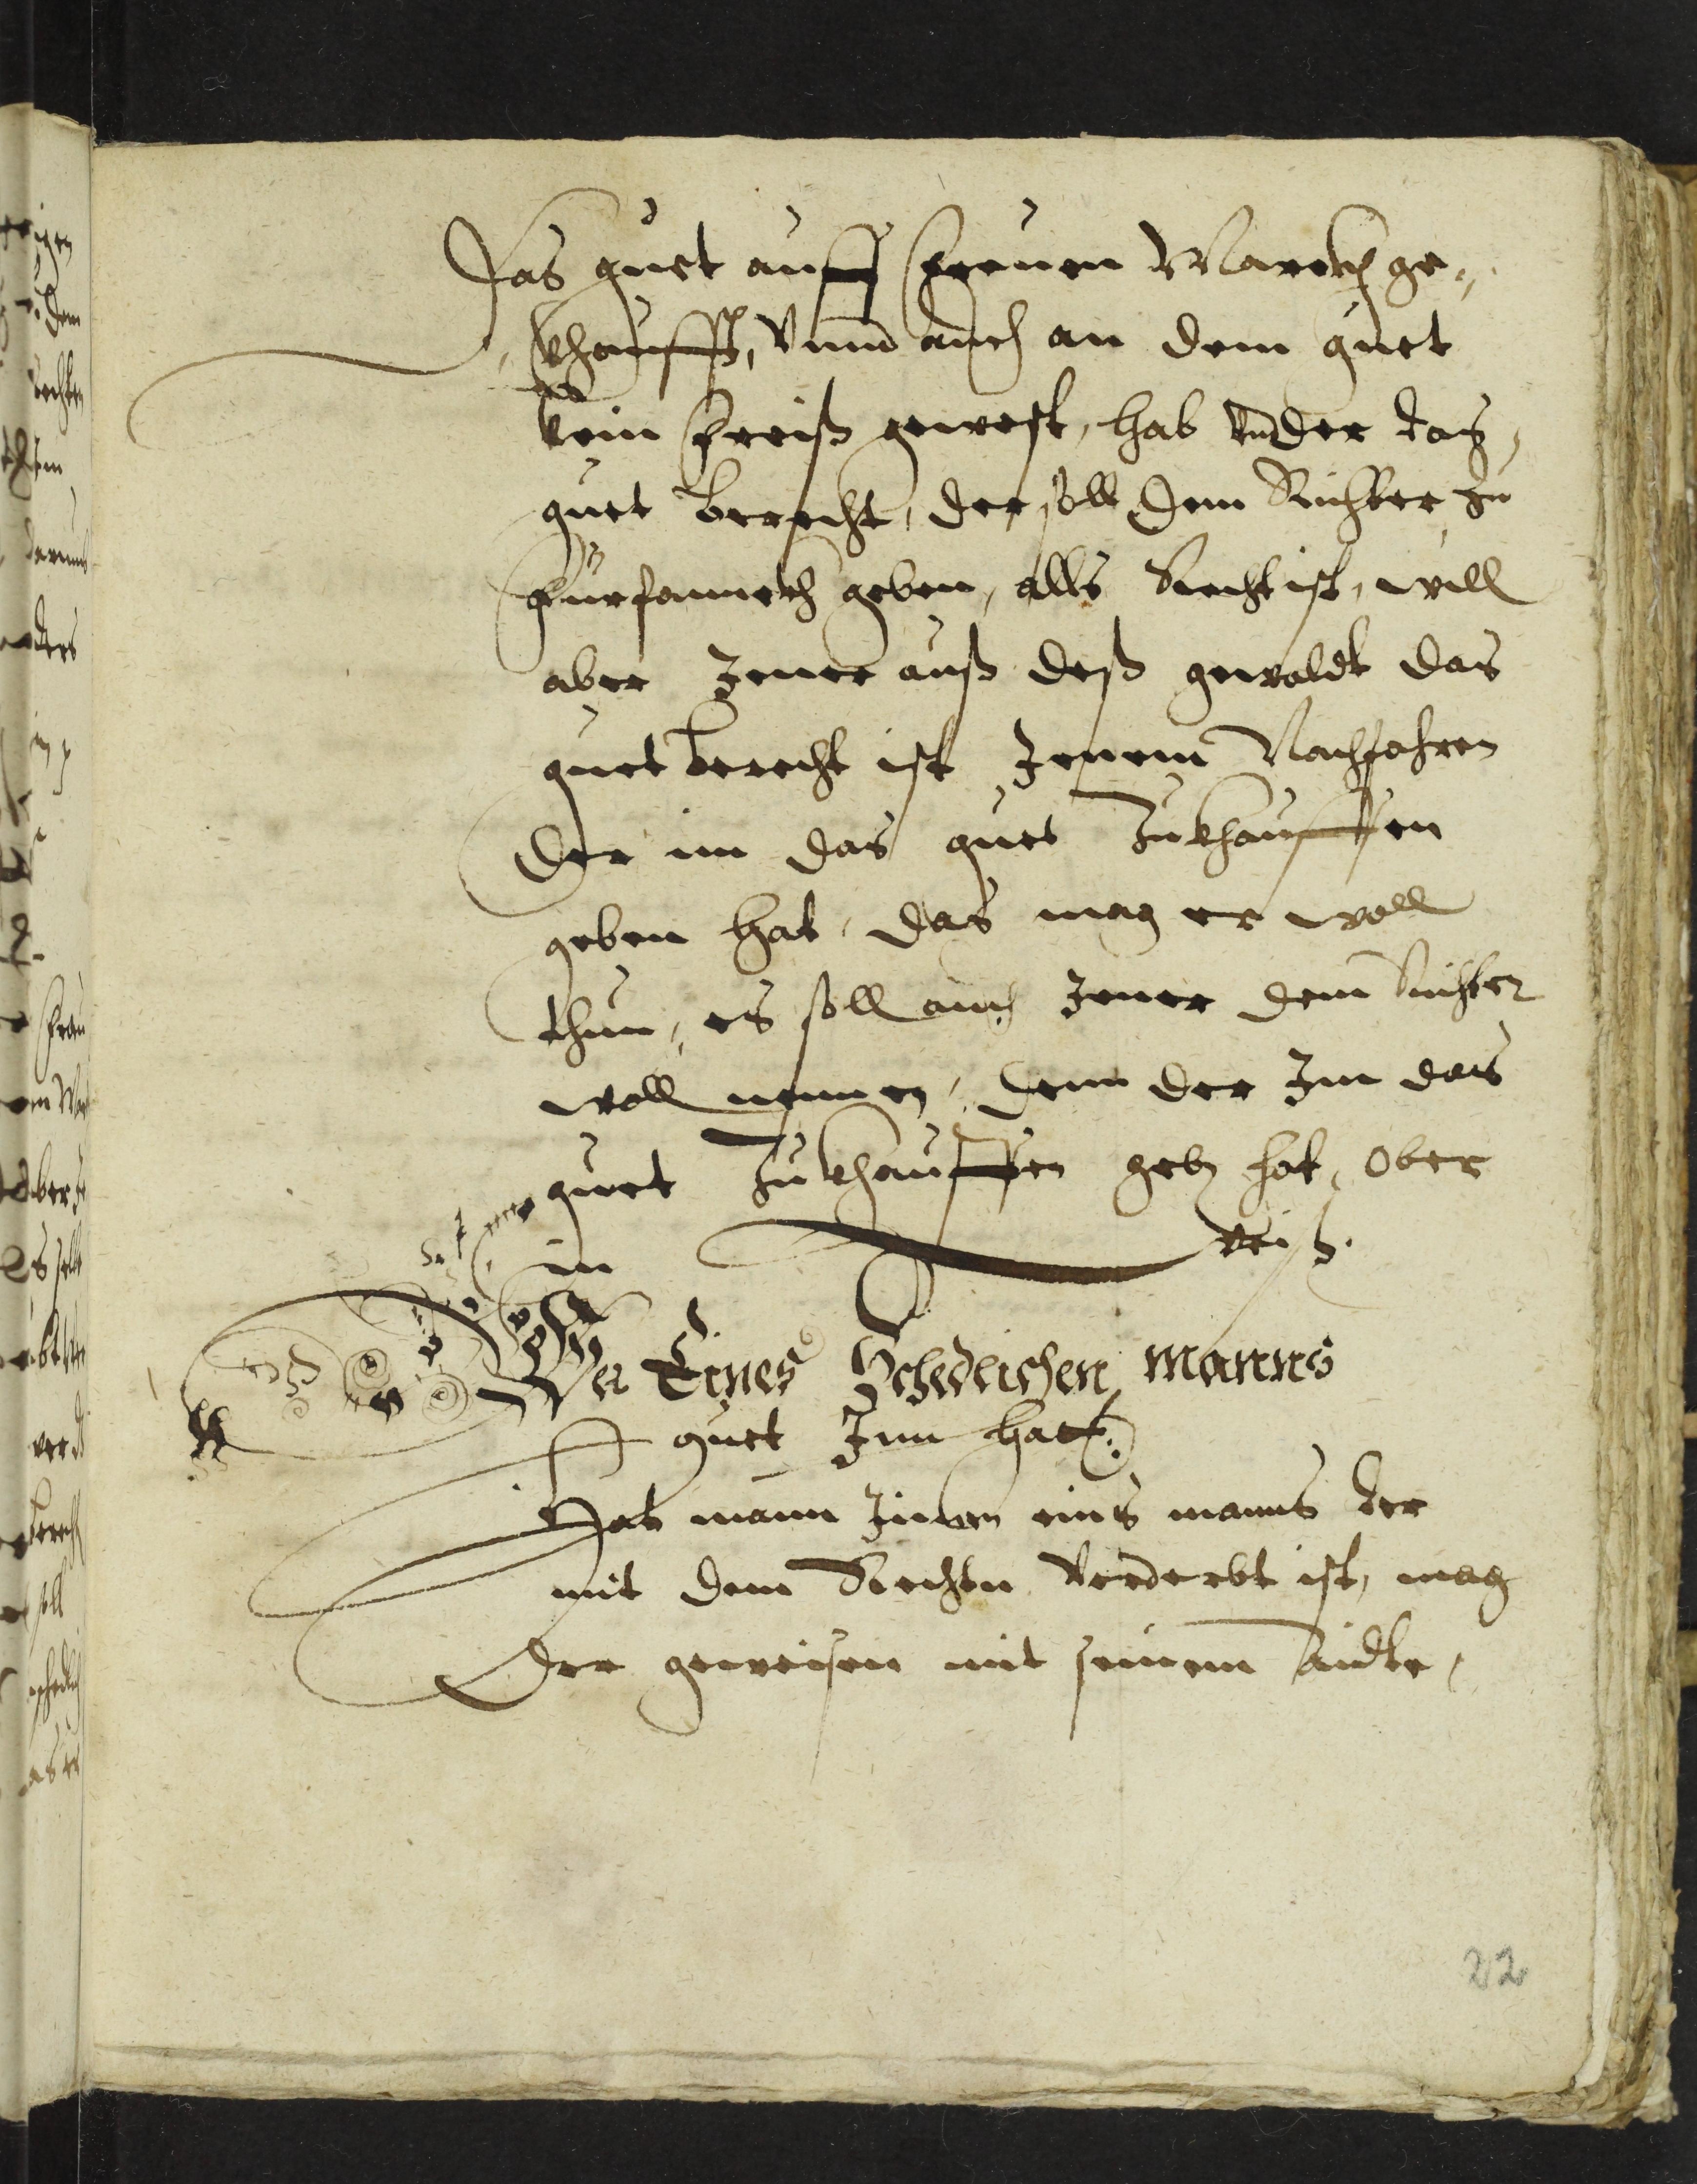 das guet auff freyen Marckh ge„
„khaufft, vnnd auch an dem guet
kein freiß gewest, hab vnder das
guet berecht, der soll dem Richter zu
fürfannckh geben, alls Recht ist, will
aber Jener auß deß gewaldt das
guet berecht ist Jenem Nachfahren
der im das guet zukhauffen
geben hat, das mag er woll
thun, es soll auch Jener dem Richter
woll nennen, denn der Im das
guet zukhauffen gebn hat, ober
in weiß.
Wer Eines Schedlichen manns
guet Inn hat.
Hat mann Innen eins manns der
mit dem Rechten verderbt ist, mag
der geweisen mit seinem aidte,
22